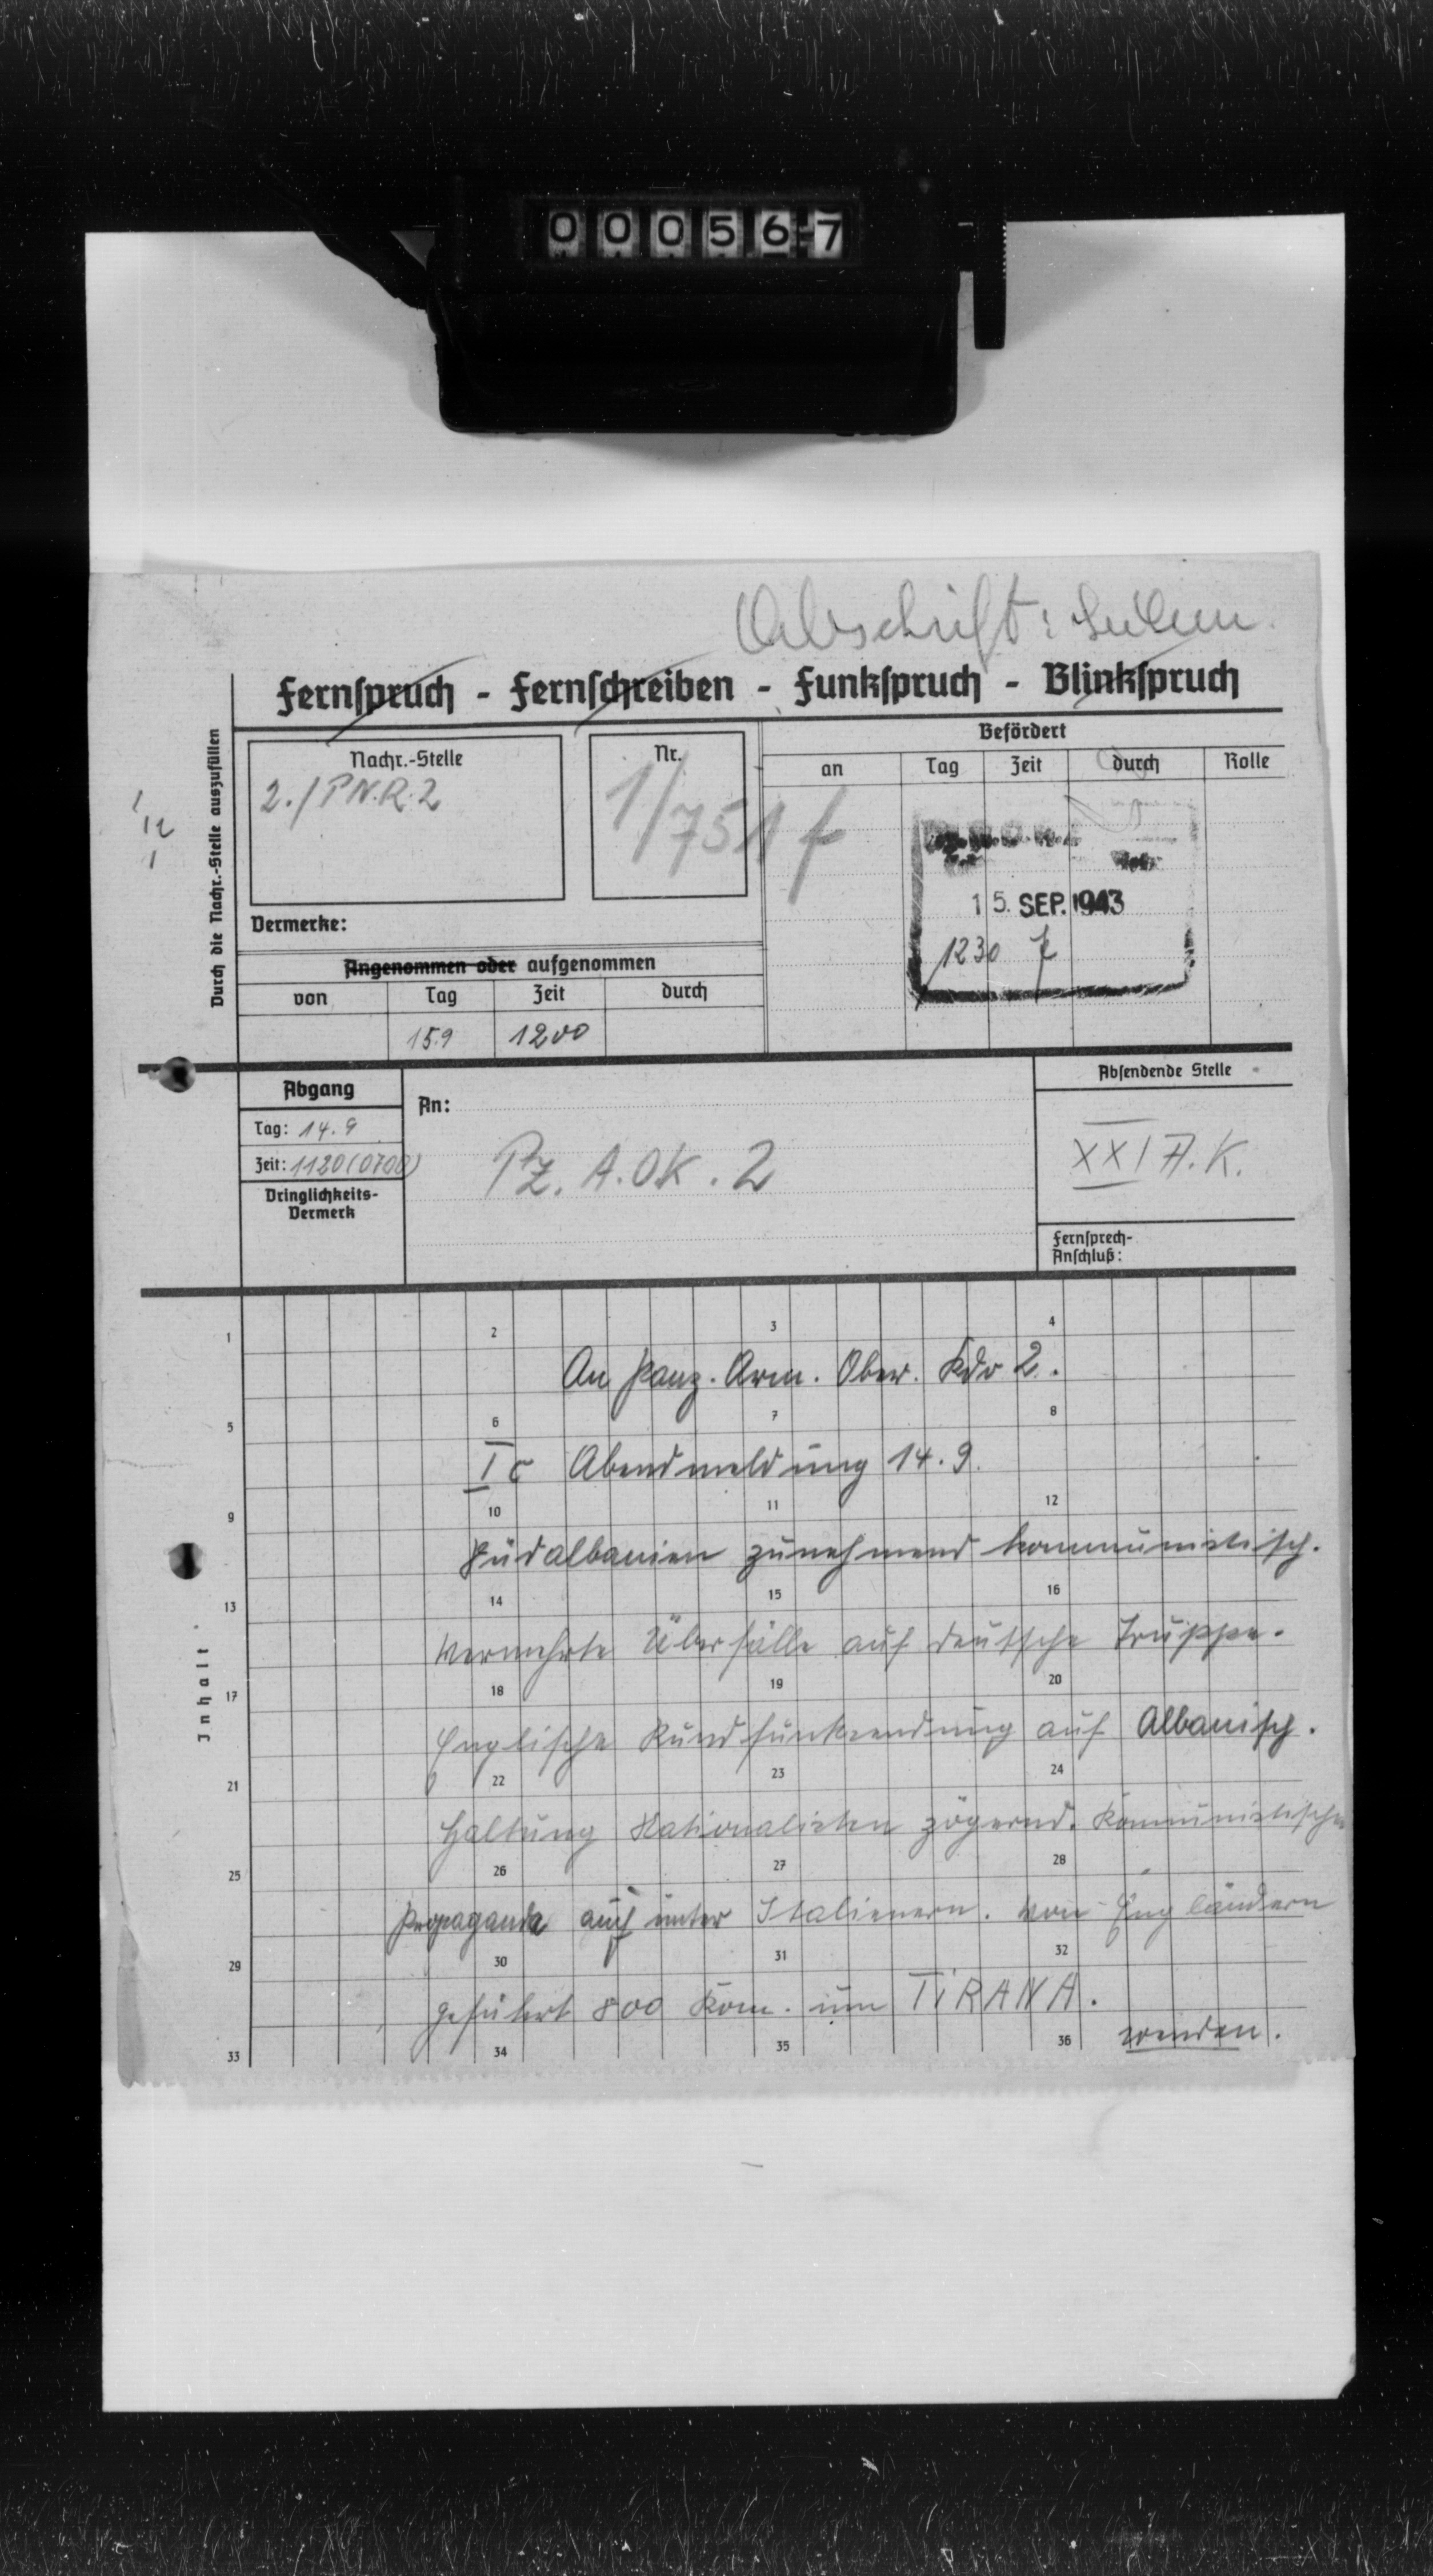 000567
Abschrift:
Fernspruch - Fernschreiben - Funkspruch - Blinkspruch
Durch die Nachr.-Stelle auszufüllen
Nachr.-Stelle
2./P.N.R.2
Nr.
1/751 f
Befördert
an Tag Zeit durch Rolle
15. SEP. 1943
1230
Vermerke:
Angenommen oder aufgenommen
von Tag Zeit durch
15.9 1200
Abgang
Tag: 14.9
Zeit: 1120 (0700)
Dringlichkeits-
Vermerk
An:
Pz. A.O.K. 2
Absendende Stelle
XXI A.K.
Fernsprech-
Anschluß:
Inhalt
1 2 3 4
An Panz. Arm. Ober. Kdo 2.
5 6 7 8
Ic Abendmeldung 14.9.
9 10 11 12
Südalbanien zunehmend kommunistisch.
13 14 15 16
Vermehrte Überfälle auf deutsche Truppe.
17 18 19 20
Englische Rundfunksendung auf Albanisch.
21 22 23 24
Haltung Nationalisten zögernd. Kommunistische
25 26 27 28
Propaganda auch unter Italienern. Von Engländern
29 30 31 32
geführt 800 Kom. um TIRANA.
wenden.
33 34 35 36